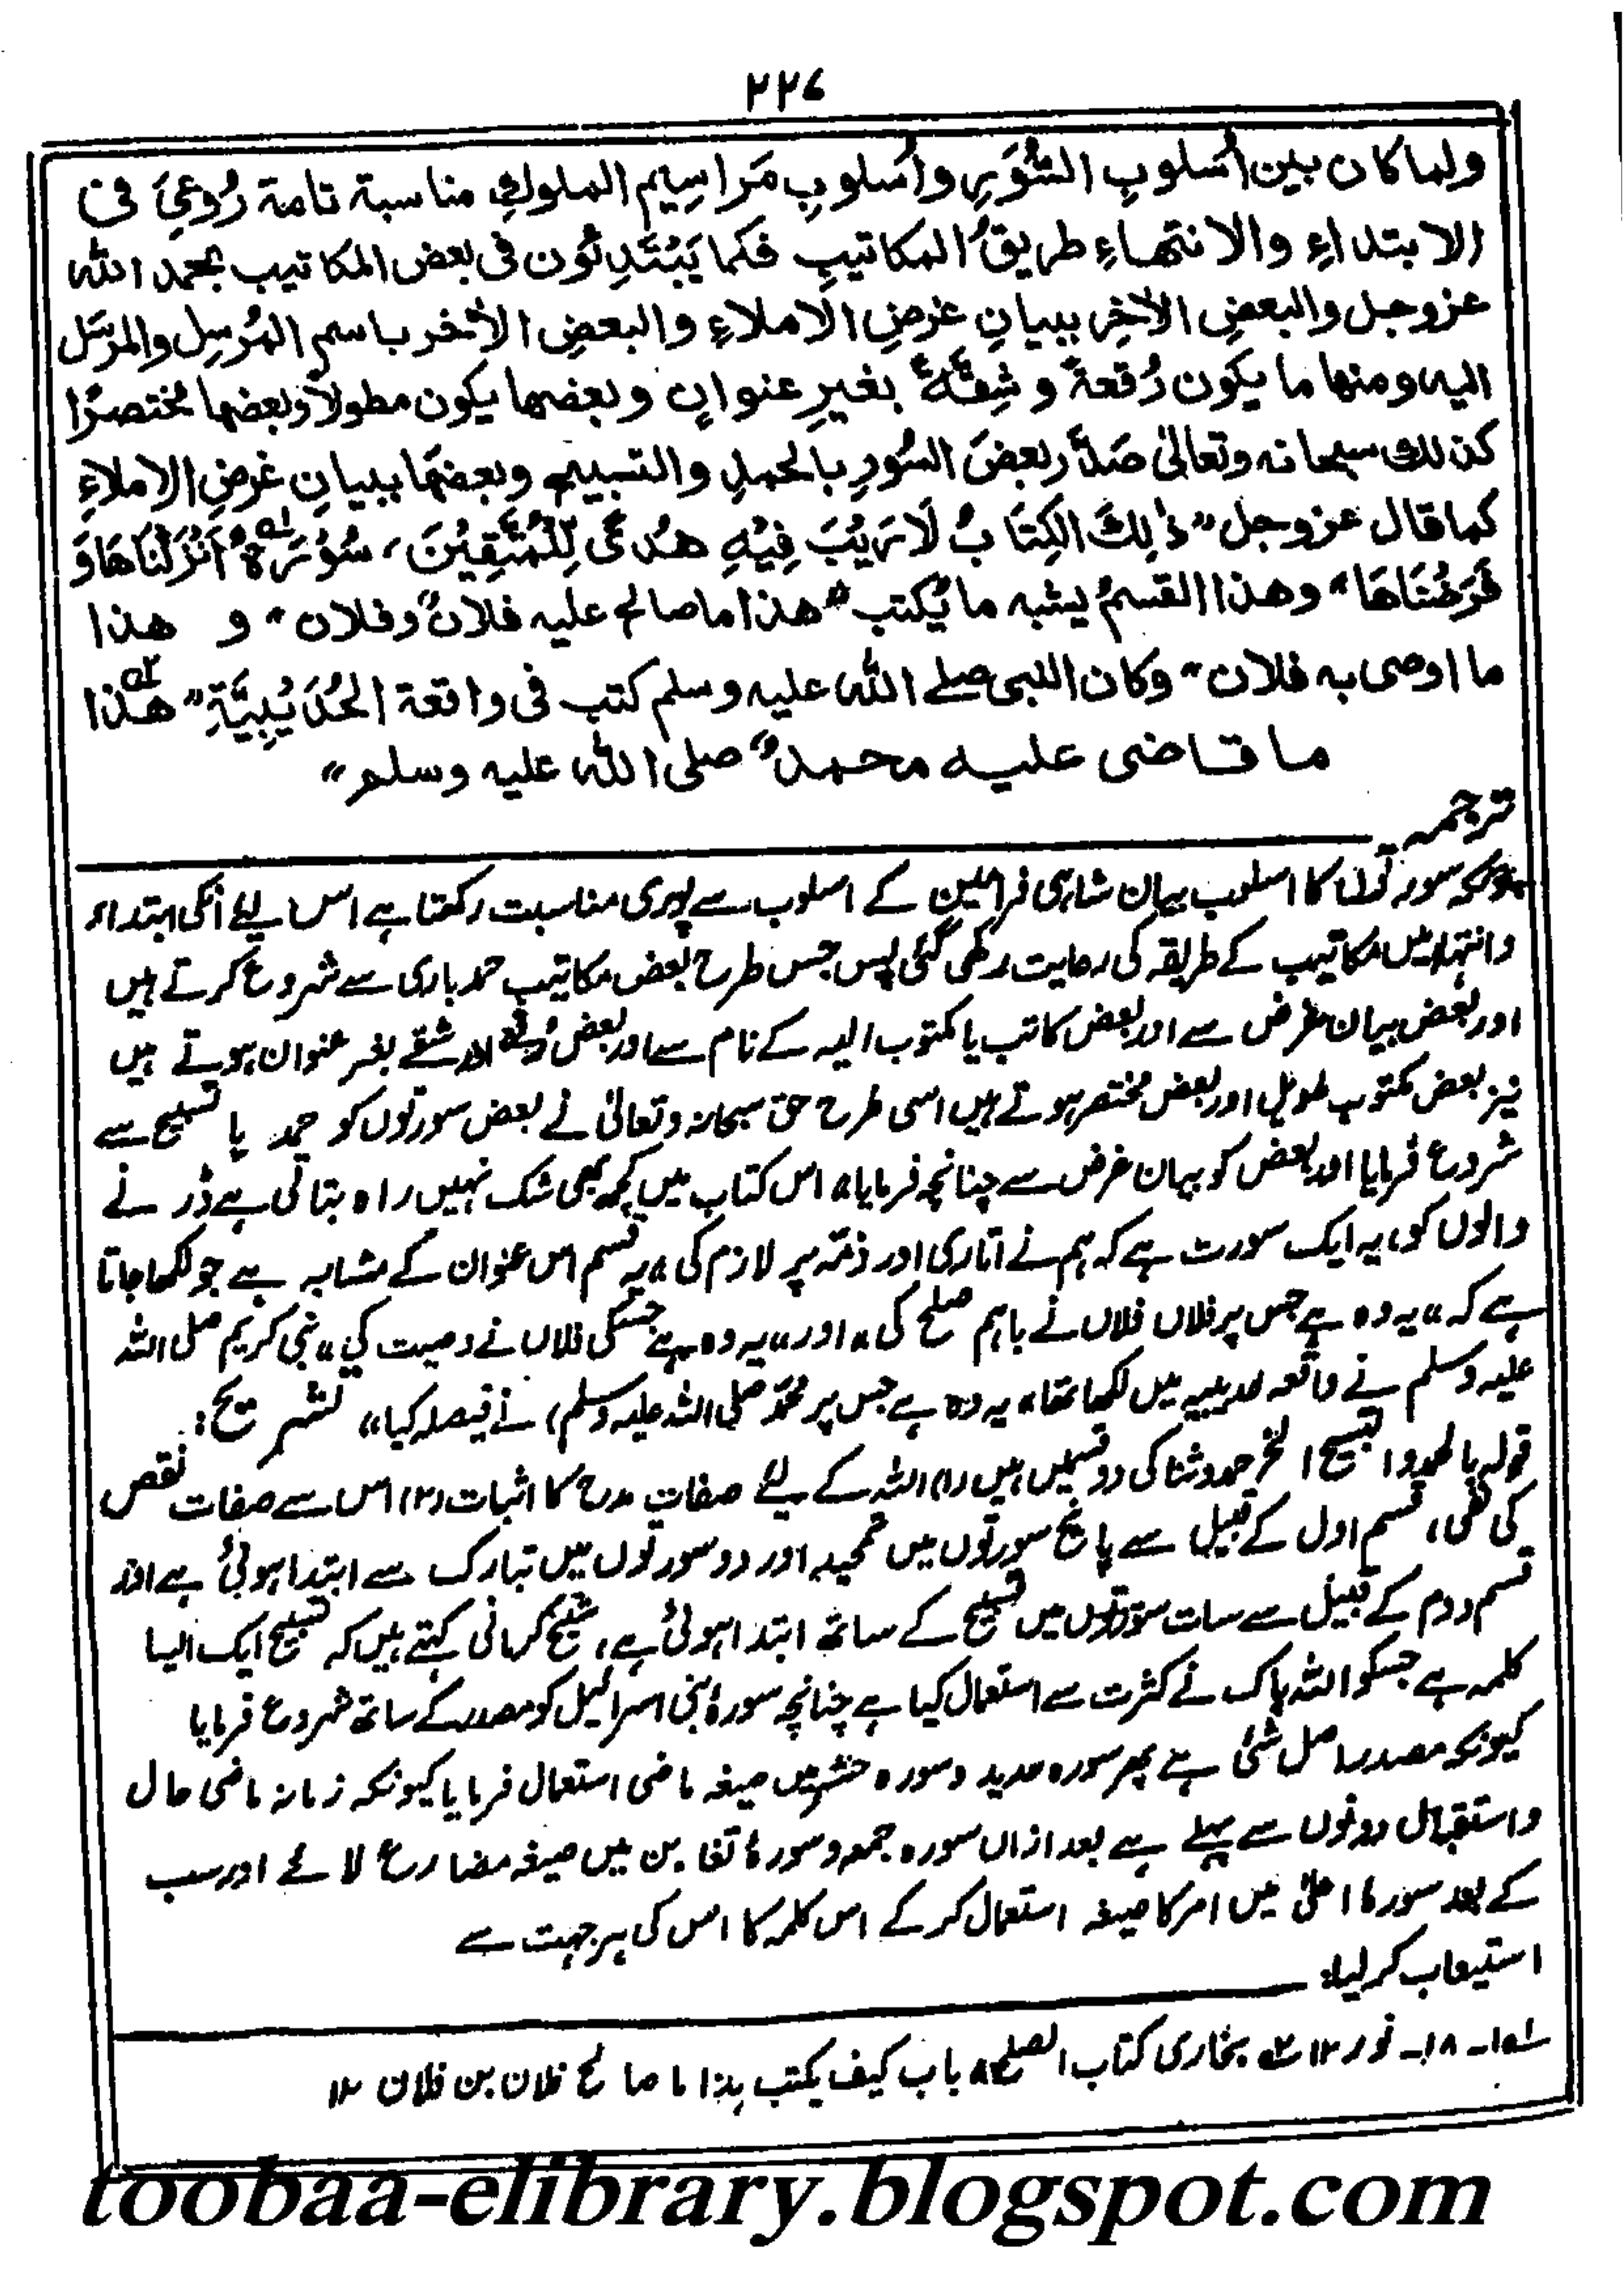 ۲۲۷
ولما كان بين أسلوبِ السُّوَرِ وأسلوبِ مَراسِيمِ الملوكِ مناسبة تامة رُوعِيَ فى
الابتداءِ والانتهاءِ طريقُ المكاتيبِ فكما يَبْتَدِئُون فى بعض المكاتيب بحمد الله
عزوجل والبعضِ الأخرِ ببيانِ غرضِ الاملاءِ والبعضِ الأخر باسمِ المُرسِل والمرسَل
اليه ومنها ما يكون رُقعةً وشِقَّةً بغيرِ عنوانٍ وبعضها يكون مطولاً وبعضها مختصرًا
كذلك سبحانه وتعالىٰ صَدَّر بعضَ السُّورِ بالحمدِ والتسبيحِ وبعضَها ببيانِ غرضِ الاملاءِ
كما قال عزوجل "ذٰلِكَ الْكِتَابُ لَا رَيْبَ فِيْهِ هُدًى لِّلْمُتَّقِيْنَ، سُوْرَةٌ ۱ اَنْزَلْنَاهَا وَ
فَرَضْنَاهَا" وهذا القسمُ يشبه ما يُكتب "هذا ما صالح عليه فلانٌ وفلان" و هذا
ما اوصى به فلان" وكان النبى صلے الله عليه وسلم كتب فى واقعة الحُدَيْبِيَّةِ "هٰذا ۲
ما قاضى عليه محمدٌ صلى الله عليه وسلم"
ترجمہ
چونکہ سورتوں کا اسلوب بیان شاہی فرامین کے اسلوب سے پوری مناسبت رکھتا ہے اس لیے انکی ابتداء
وانتہا میں مکاتیب کے طریقہ کی رعایت رکھی گئی پس جس طرح بعض مکاتیب حمد باری سے شروع کرتے ہیں
اور بعض بیان غرض سے اور بعض کاتب یا مکتوب الیہ کے نام سے اور بعض رقعے اور شقے بغیر عنوان ہوتے ہیں
نیز بعض مکتوب طویل اور بعض مختصر ہوتے ہیں اسی طرح حق سبحانہ وتعالیٰ نے بعض سورتوں کو حمد یا تسبیح سے
شروع فرمایا اور بعض کو بیان غرض سے چنانچہ فرمایا "اس کتاب میں کچھ بھی شک نہیں راہ بتاتی ہے ڈرنے
والوں کو، یہ ایک سورت ہے کہ ہم نے اتاری اور ذمّہ پر لازم کی" یہ قسم اس عنوان کے مشابہ ہے جو لکھا جاتا
ہے کہ "یہ وہ ہے جس پر فلاں فلاں نے باہم صلح کی" اور "یہ وہ ہے جسکی فلاں نے وصیت کی" نبی کریم صلی اللہ
علیہ وسلم نے واقعہ حدیبیہ میں لکھا تھا "یہ وہ ہے جس پر محمّد (صلی اللہ علیہ وسلم) نے فیصلہ کیا" تشریح:
قولہ بالحمد والتسبیح الخ حمد وثنا کی دو قسمیں ہیں (۱) اللہ کے لیے صفات مدح کا اثبات (۲) اس سے صفات نقص
کی نفی، قسم اول کے قبیل سے پانچ سورتوں میں تحمید اور دو سورتوں میں تبارک سے ابتدا ہوئی ہے اور
قسم دوم کے قبیل سے سات سورتوں میں تسبیح کے ساتھ ابتدا ہوئی ہے، شیخ کرمانی کہتے ہیں کہ تسبیح ایک ایسا
کلمہ ہے جسکو اللہ پاک نے کثرت سے استعمال کیا ہے چنانچہ سورۂ بنی اسرائیل کو مصدر کے ساتھ شروع فرمایا
کیونکہ مصدر اصل شئی ہے پھر سورہ حدید وسورہ حشر میں صیغہ ماضی استعمال فرمایا کیونکہ زمانہ ماضی حال
واستقبال دونوں سے پہلے ہے بعد ازاں سورہ جمعہ وسورۂ تغابن میں صیغہ مضارع لائے اور سب
کے بعد سورۂ اعلیٰ میں امر کا صیغہ استعمال کرکے اس کلمہ کا اس کی ہر جہت سے
استیعاب کرلیا:
۱؎ پ ۱۸ نور ۱۲ ۲؎ بخاری کتاب الصلح باب کیف یکتب ہذا ما صالح فلان بن فلان ۱۲
toobaa-elibrary.blogspot.com